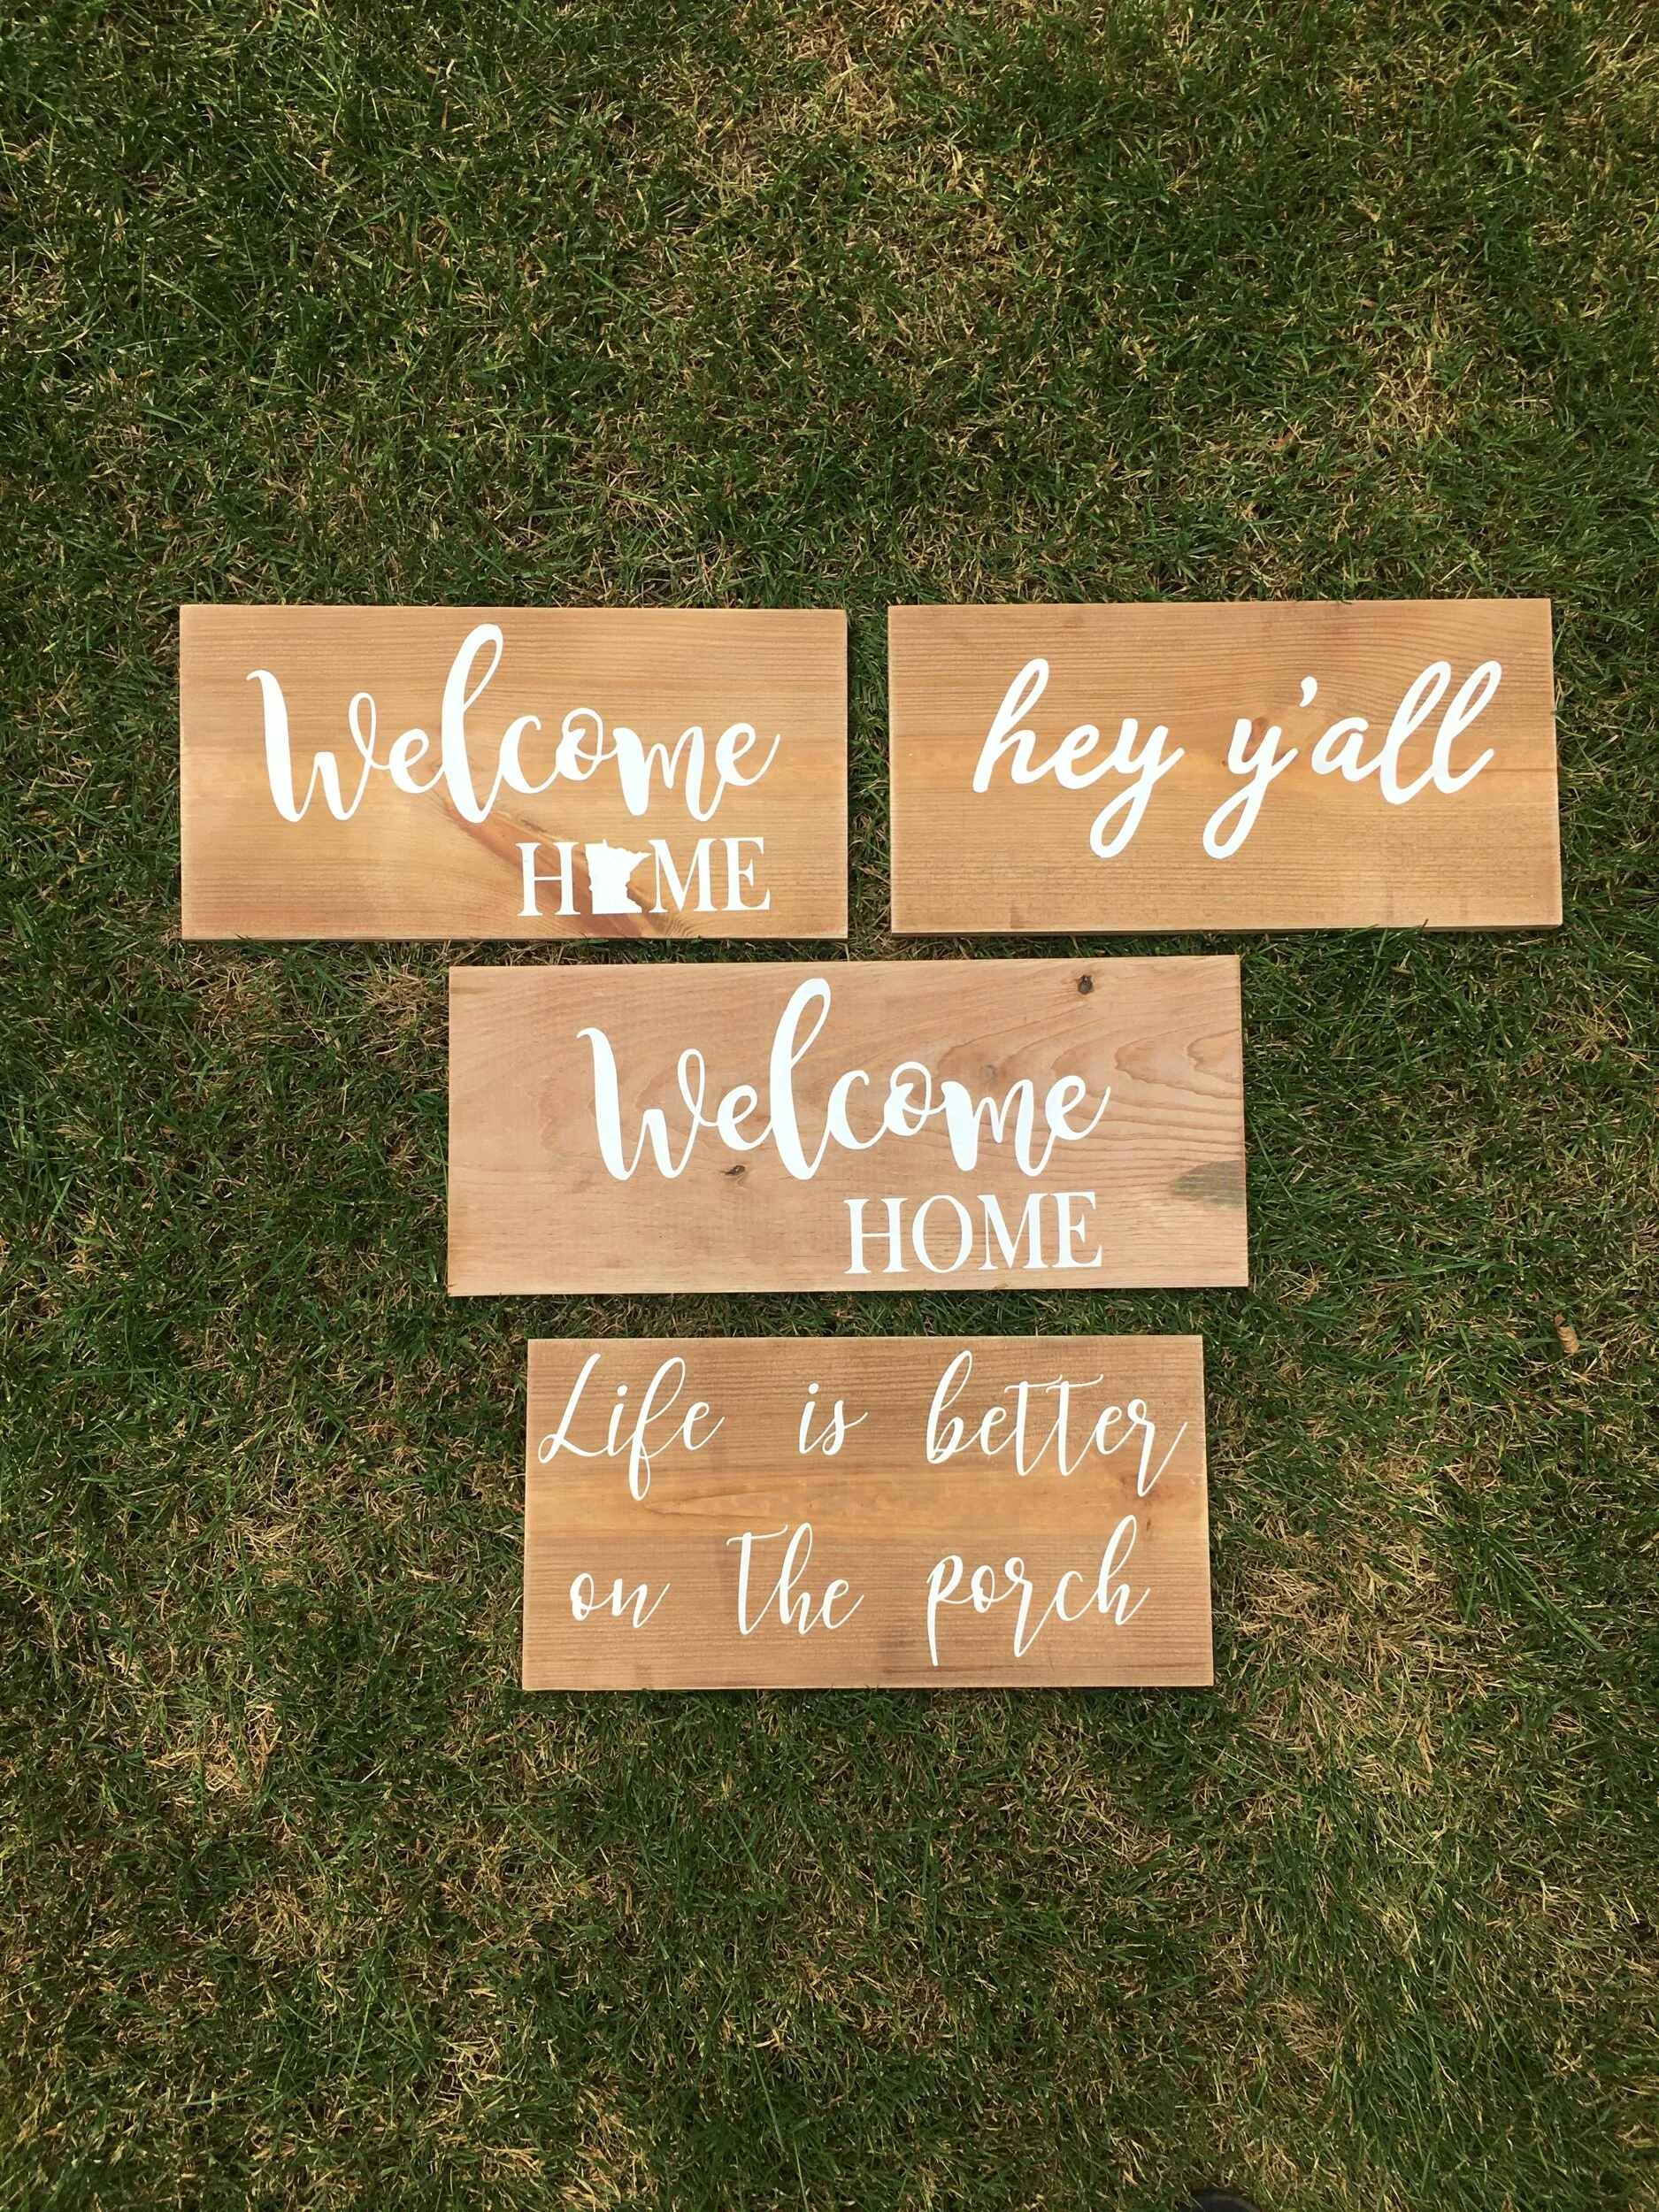 Welcome
HOME
hey y'all
Welcome
HOME
Life is better
on the porch